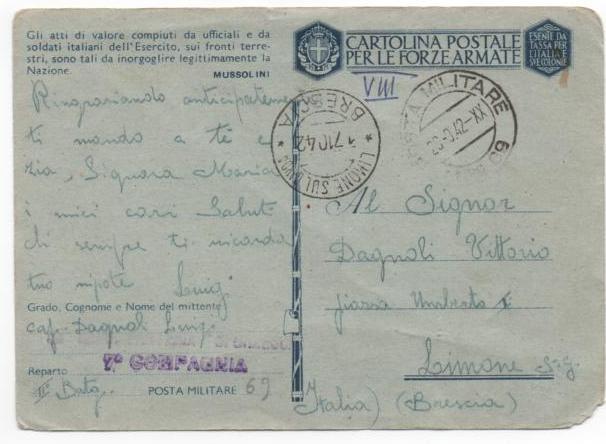 Gli atti di valore compiuti da ufficiali e da
soldati italiani dell'Esercito, sui fronti terre-
stri, sono tali da inorgoglire legittimamente la
Nazione.
MUSSOLINI
Ringraziando anticipatamente
ti mando a te e
zia, Signora Maria
i miei cari Saluti
di sempre ti ricorda
tuo nipote Luigi
Grado, Cognome e Nome del mittente
cap. Dagnoli Luigi
7ª COMPAGNIA
Reparto
IIº Batg.
POSTA MILITARE 69
CARTOLINA POSTALE
PER LE FORZE ARMATE
ESENTE DA
TASSA PER
L'ITALIA E
SUE COLONIE
VIII
BRESCIA
17.10.42
LIMONE SUL GARDA
POSTA MILITARE 69
Al Signor
Dagnoli Vittorio
piazza Umberto I
Limone S.G.
Italia) (Brescia)